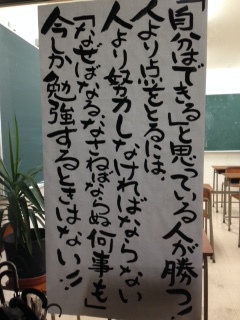 「自分はできる」と思っている人が勝つ!!
人より点をとるには、
人より努力しなければならない
「なせばなる、なさねばならぬ何事も」
今しか勉強するときはない!!